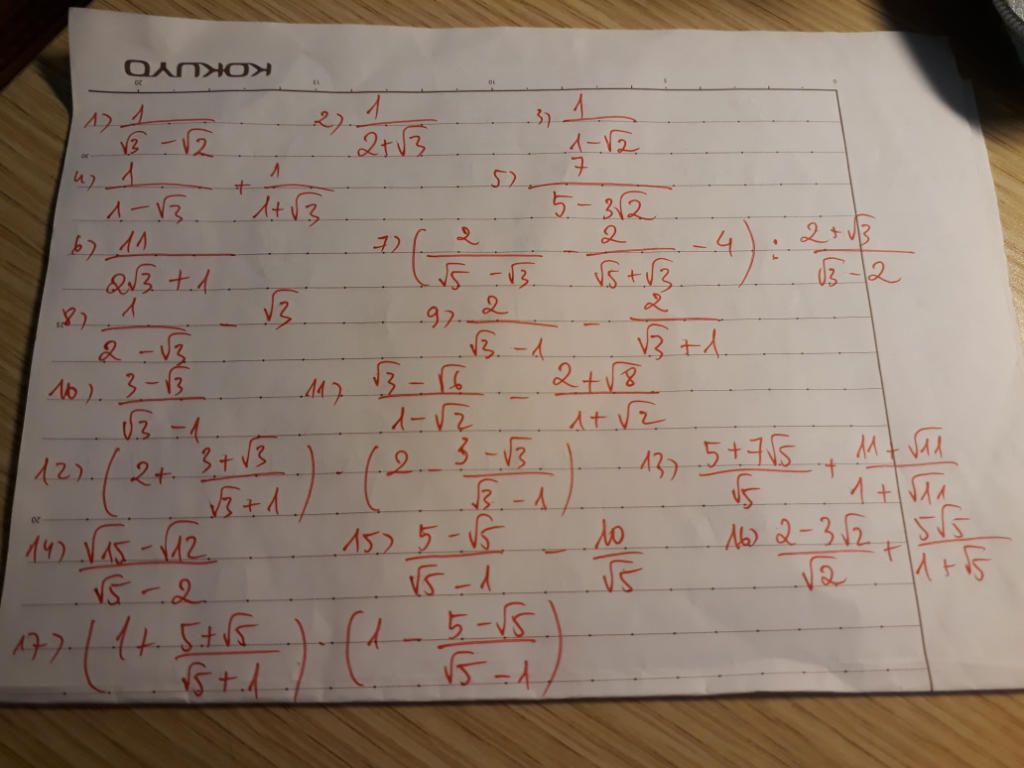 KOKUYO
20 15 10 5 0
1) 1/(√3 - √2) 2) 1/(2+√3) 3) 1/(1-√2)
4) 1/(1-√3) + 1/(1+√3) 5) 7/(5-3√2)
6) 11/(2√3+1) 7) (2/(√5-√3) - 2/(√5+√3) - 4) : (2+√3)/(√3-2)
8) 1/(2-√3) - √3 9) 2/(√3-1) - 2/(√3+1)
10) (3-√3)/(√3-1) 11) (√3-√6)/(1-√2) - (2+√8)/(1+√2)
12) (2+ (3+√3)/(√3+1)) · (2 - (3-√3)/(√3-1)) 13) (5+7√5)/√5 + (11+√11)/(1+√11)
14) (√15-√12)/(√5-2) 15) (5-√5)/(√5-1) - 10/√5 16) (2-3√2)/√2 + 5√5/(1+√5)
17) (1+ (5+√5)/(√5+1)) · (1 - (5-√5)/(√5-1))